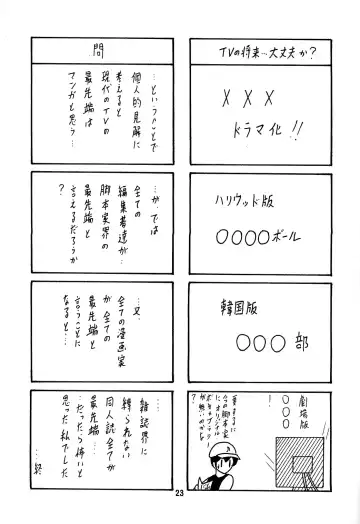 TVの将来…大丈夫か?
XXX
ドラマ化!!
ハリウッド版
〇〇〇〇ボール
韓国版
〇〇〇部
劇場版
〇〇〇
!
問
…ということで
個人的見解に
考えると
現代のTVの
最先端は
マンガと思う…
…が、では
全ての
編集者達が…
脚本家界の
最先端と
言えるだろうか
?
…又、
全ての漫画家
が全ての
最先端と
言うことに
なると…
雑誌界に
縛られない
同人誌全てが
最先端…
…だったら怖いと
思った私でした
…終
23